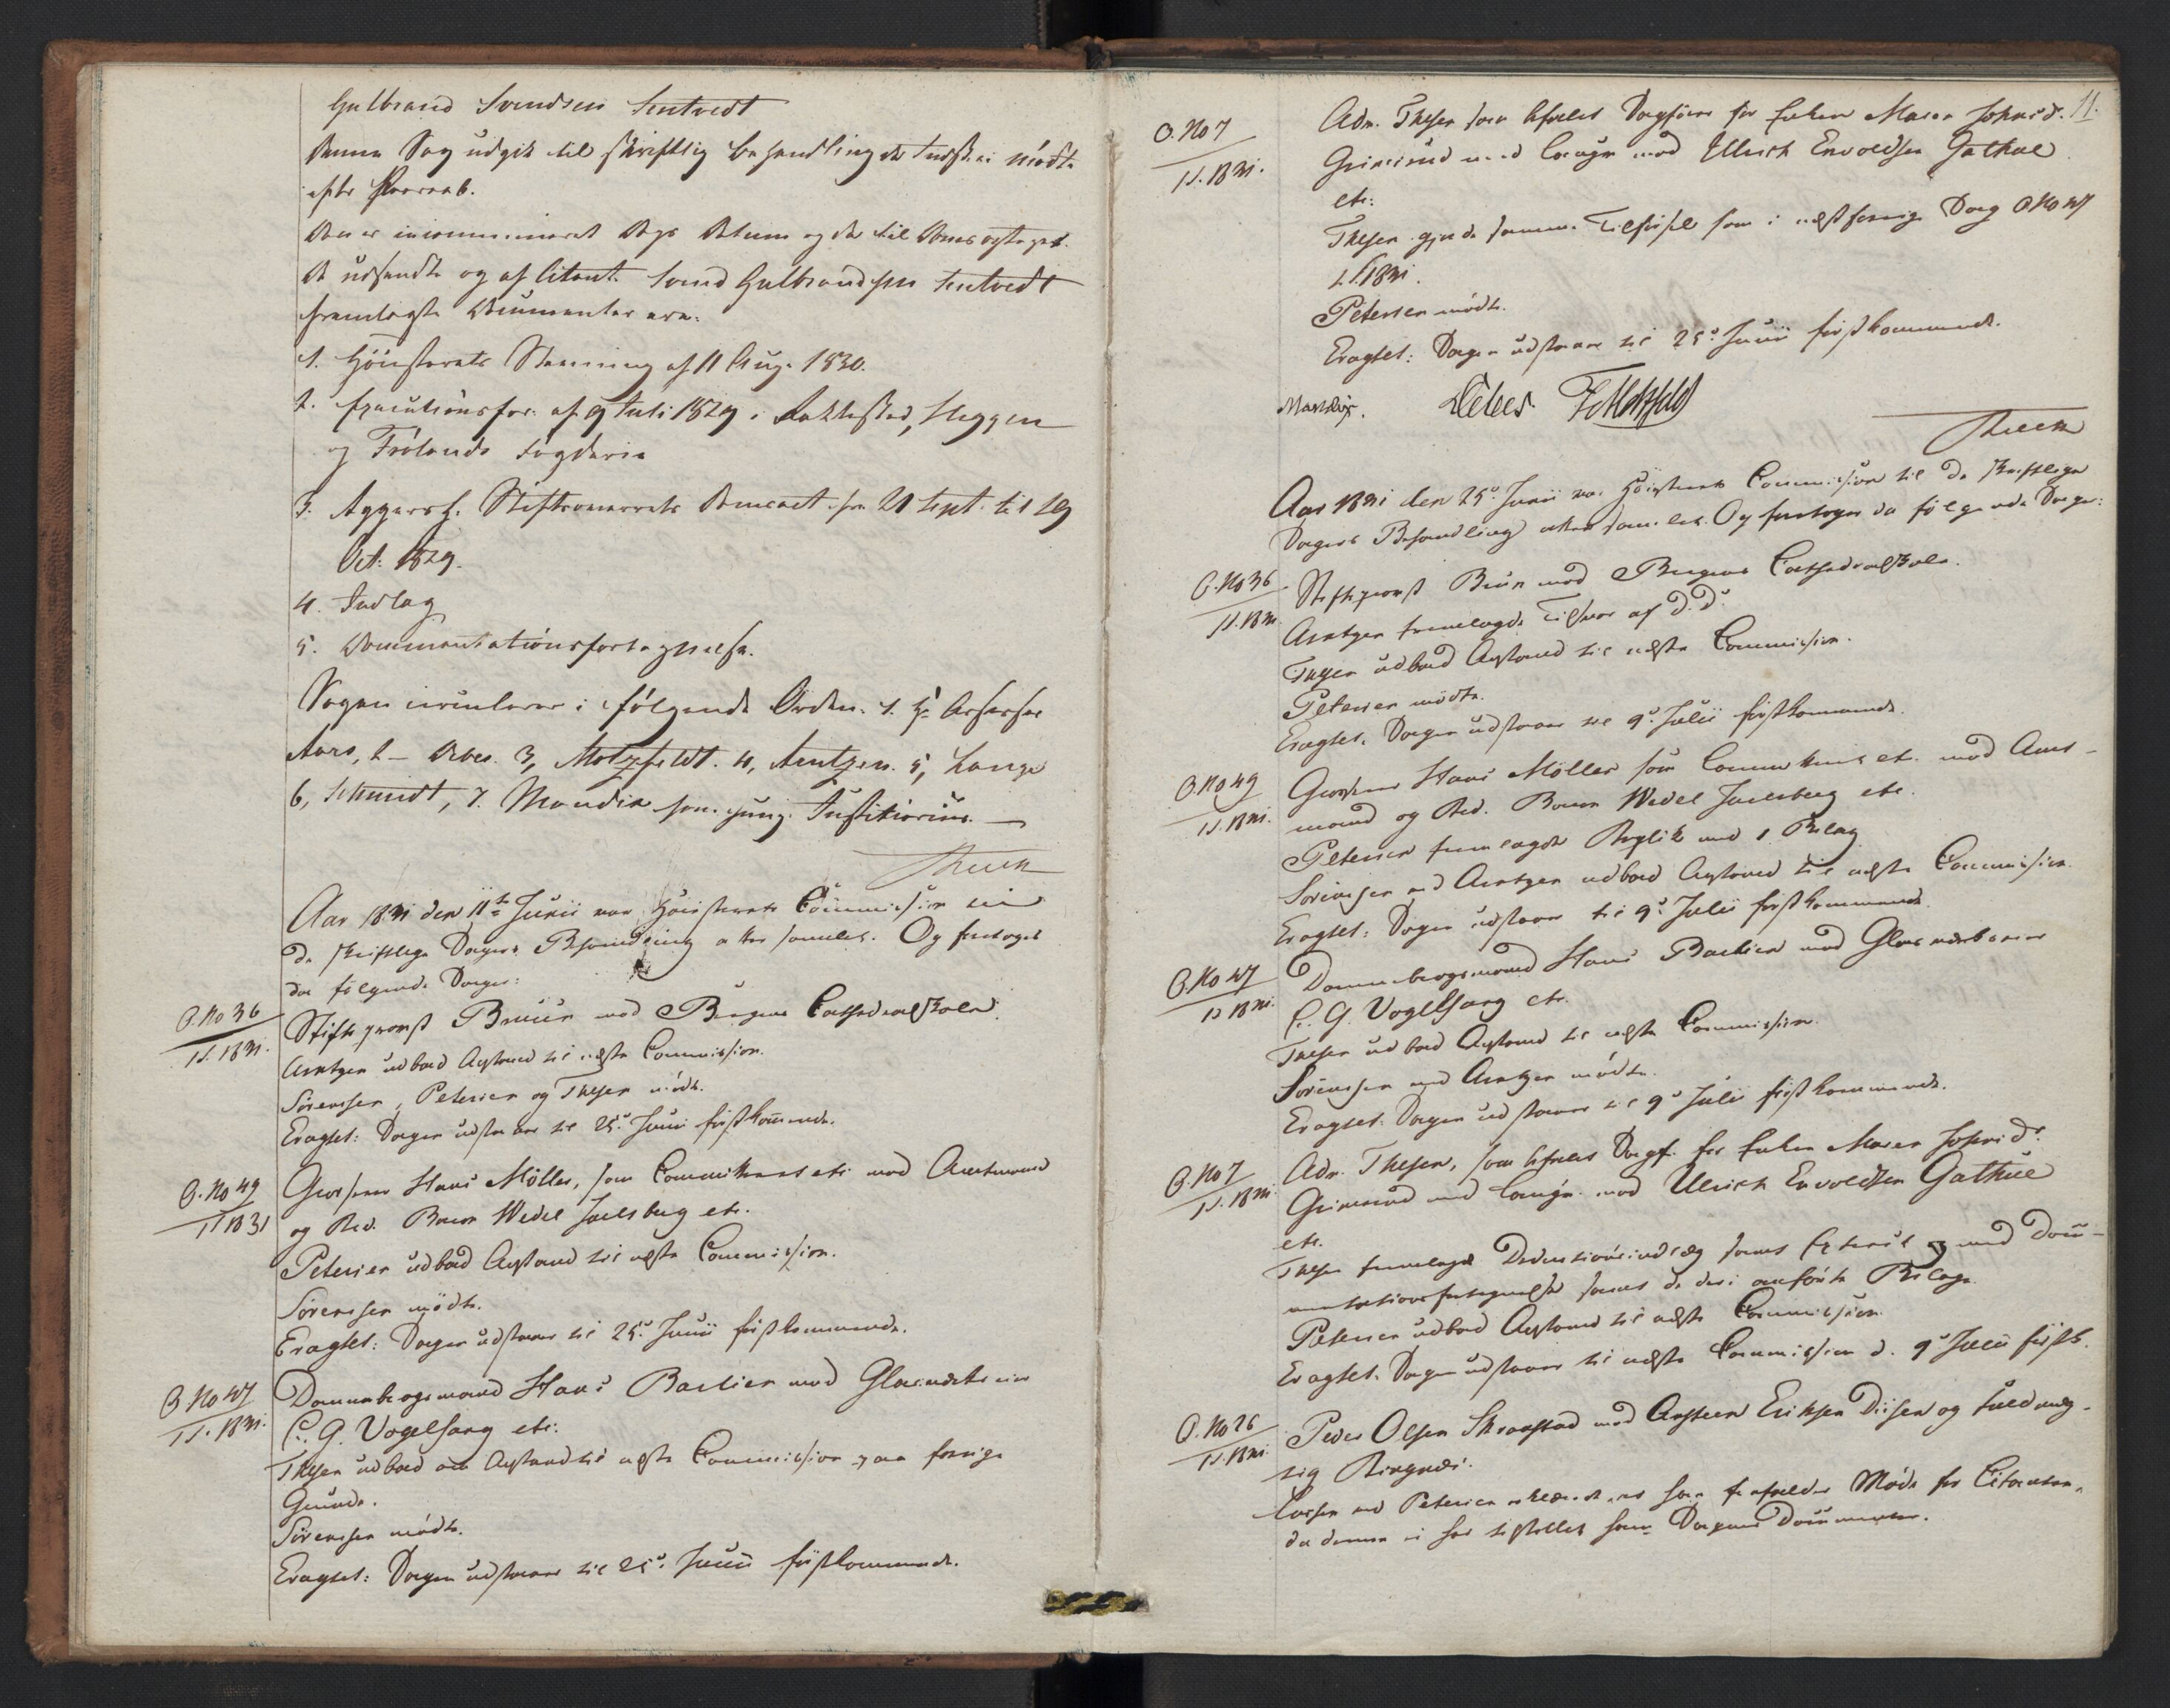 Gulbrand Svendsen Sentvedt
Denne Sag udgik til skriftlig Behandling da Indst. ei mødte
efter Paaraab.
Den er incammineret Dags Datum og da til Doms optaget.
De udsendte og af Citant. Svend Gulbrandssen Sentvedt
fremlagte Documenter ere:
1. Höiesterets Stevning af 11 Aug. 1830.
2. Executionsfor. af 9 Juli 1829 i Rakkestad, Heggen
og Frölands Fogderie
3. Aggersh. Stiftsoverrets Domsact fra 21 Sept. til 19
Oct. 1829.
4. Indlæg
5. Documentationsfortegnelse.
Sagen circulerer i følgende Orden. 1. Hr Assessor
Aars, 2 – Debes. 3, Motzfeldt. 4, Arntzen. 5, Lange
6, Schmidt, 7. Mandix som fung. Justitiarius. —
Aar 1831 den 11te Junii var Høiesterets Commission til
de skriftlige Sagers Behandling atter samlet. Og foretoges
da følgende Sager:
O. No 36
1 S. 1831.
Stiftsprovst Bruun mod Bergens Cathedralskole.
Arntzen udbad Anstand til næste Commission.
Sörenssen, Petersen og Thesen mödte.
Eragtet: Sagen udstaaer til 25de Junii førstkommende.
O. No 49
1 S 1831
Grosserer Hans Möller, som Committeret etc. mod Amtmand
og Red. Baron Wedel Jarlsberg etc.
Petersen udbad Anstand til næste Commission.
Sörenssen mødte.
Eragtet: Sagen udstaaer til 25de Junii førstkommende.
O No 47
1 S. 1831.
Dannebrogsmand Hans Bastian mod Glarmester
C. G. Vogelsang etc:
Thesen udbad om Anstand til næste Commission paa forrige
Grunde.
Sörenssen mødte.
Eragtet: Sagen udstaaer til 25de Junii førstkommende.
11.
O. No 7
1 S. 1831.
Adv. Thesen som befalet Sagfører for Enken Maren Johnsd.
Grimsrud med Curator mod Ulrich Envoldsen Gathue
etc:
Thesen gjorde samme Tilførsel som i næstforrige Sag O No 47
1 S 1831.
Petersen mødte.
Eragtet: Sagen udstaaer til 25de Junii førstkommende.
Mandix. Debes. Motzfeldt
Aar 1831 den 25de Junii var Høiesterets Commission til de skriftlige
Sagers Behandling atter samlet. Og foretoges da følgende Sager:
O. No 36
1 S. 1831
Stiftsprovst Bruun mod Bergens Cathedralskole.
Arntzen fremlagde Tilsvar af D. D.
Thesen udbad Anstand til næste Commission.
Petersen mødte.
Eragtet: Sagen udstaaer til 9de Julii førstkommende.
O No 49
1 S. 1831.
Grosserer Hans Möller som Committeret etc. mod Amt-
mand og Red. Baron Wedel Jarlsberg etc.
Petersen fremlagde Replik med 1 Bilag.
Sörenssen ved Arntzen udbad Anstand til næste Commission.
Eragtet: Sagen udstaaer til 9de Julii førstkommende.
O. No 47
1 S 1831.
Dannebrogsmand Hans Bastian mod Glarmester
C. G. Vogelsang etc.
Thesen udbad Anstand til næste Commission.
Sörenssen ved Arntzen mødte.
Eragtet: Sagen udstaaer til 9de Julii førstkommende.
O. No 7
1 S. 1831.
Adv. Thesen, som befalet Sagf. for Enken Maren Johnsdr.
Grimsrud med Curator mod Ulrich Envoldsen Gathue
etc.
Thesen fremlagde Deductionsindlæg samt Extract og med Docu-
mentationsfortegnelse samt de deri anførte Bilage.
Petersen udbad Anstand til næste Commission.
Eragtet: Sagen udstaaer til næste Commission d. 9de Julii førstk.
O. No 26
1 S. 1831.
Peder Olsen Skraastad mod Anstein Eriksen Diisen og
Petersen som frafaldt Møde for Citanten,
da denne ei har tilstillet ham Sagens Documenter.